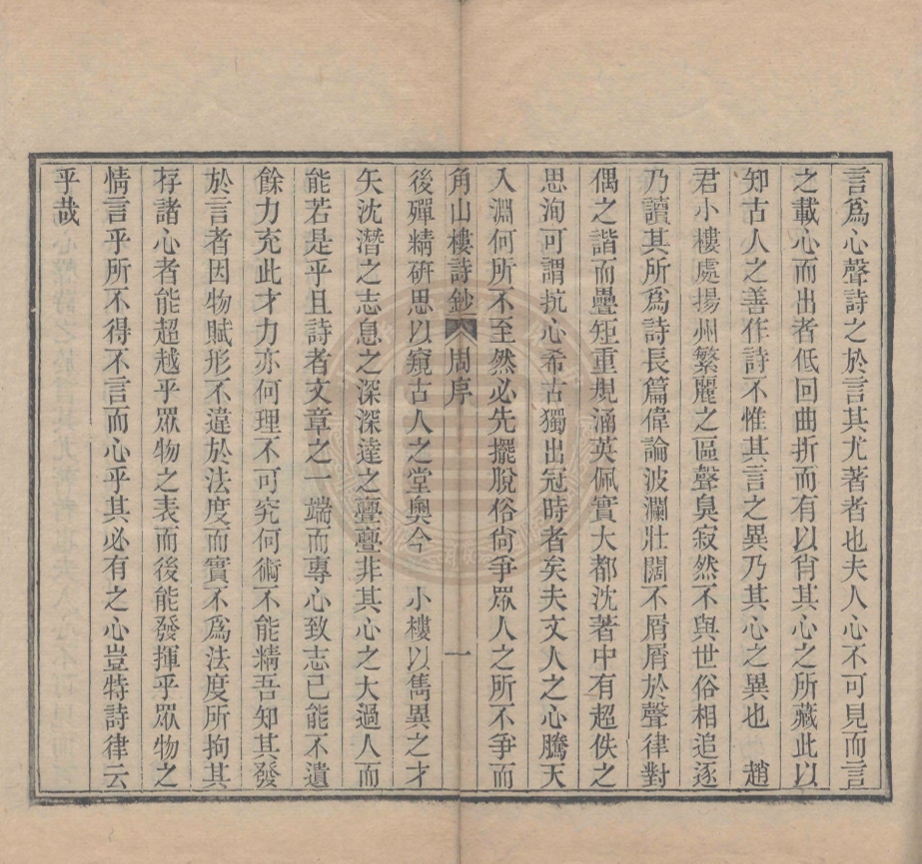 言爲心聲詩之於言其尤著者也夫人心不可見而言
之載心而出者低回曲折而有以肖其心之所藏此以
知古人之善作詩不惟其言之異乃其心之異也　趙
君小樓處揚州繁麗之區聲臭寂然不與世俗相追逐
乃讀其所爲詩長篇偉論波瀾壯闊不屑屑於聲律對
偶之諧而疊矩重規涵英佩實大都沈著中有超佚之
思洵可謂抗心希古獨出冠時者矣夫文人之心騰天
入淵何所不至然必先擺脫俗尙爭眾人之所不爭而
角山樓詩鈔　周序　一
後殫精研思以窺古人之堂奧今　小樓以雋異之才
矢沈潛之志息之深深達之亹亹非其心之大過人而
能若是乎且詩者文章之一端而專心致志已能不遺
餘力充此才力亦何理不可究何術不能精吾知其發
於言者因物賦形不違於法度而實不爲法度所拘其
存諸心者能超越乎眾物之表而後能發揮乎眾物之
情言乎所不得不言而心乎其必有之心豈特詩律云
乎哉